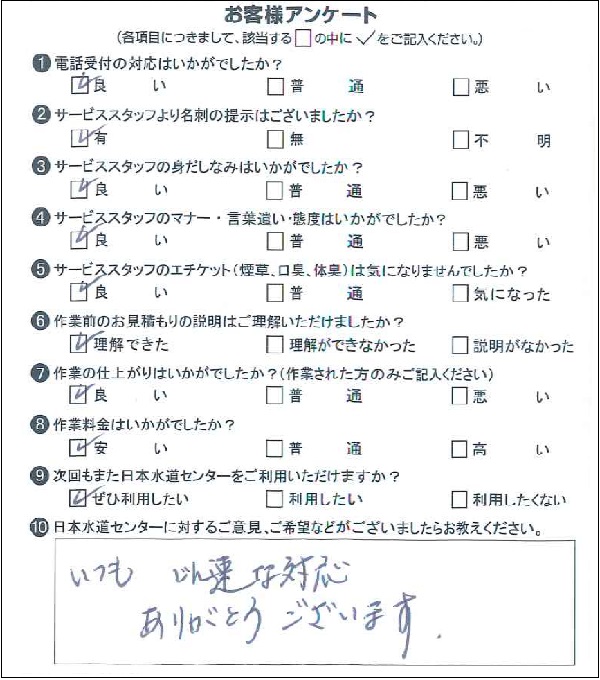 お客様アンケート
(各項目につきまして、該当する□の中に✓をご記入ください。)
❶電話受付の対応はいかがでしたか?
☑良い □普通 □悪い
❷サービススタッフより名刺の提示はございましたか?
☑有 □無 □不明
❸サービススタッフの身だしなみはいかがでしたか?
☑良い □普通 □悪い
❹サービススタッフのマナー・言葉遣い・態度はいかがでしたか?
☑良い □普通 □悪い
❺サービススタッフのエチケット(煙草、口臭、体臭)は気になりませんでしたか?
☑良い □普通 □気になった
❻作業前のお見積もりの説明はご理解いただけましたか?
☑理解できた □理解ができなかった □説明がなかった
❼作業の仕上がりはいかがでしたか?(作業された方のみご記入ください)
☑良い □普通 □悪い
❽作業料金はいかがでしたか?
☑安い □普通 □高い
❾次回もまた日本水道センターをご利用いただけますか?
☑ぜひ利用したい □利用したい □利用したくない
❿日本水道センターに対するご意見、ご希望などがございましたらお教えください。
いつも じん速な対応
ありがとうございます.